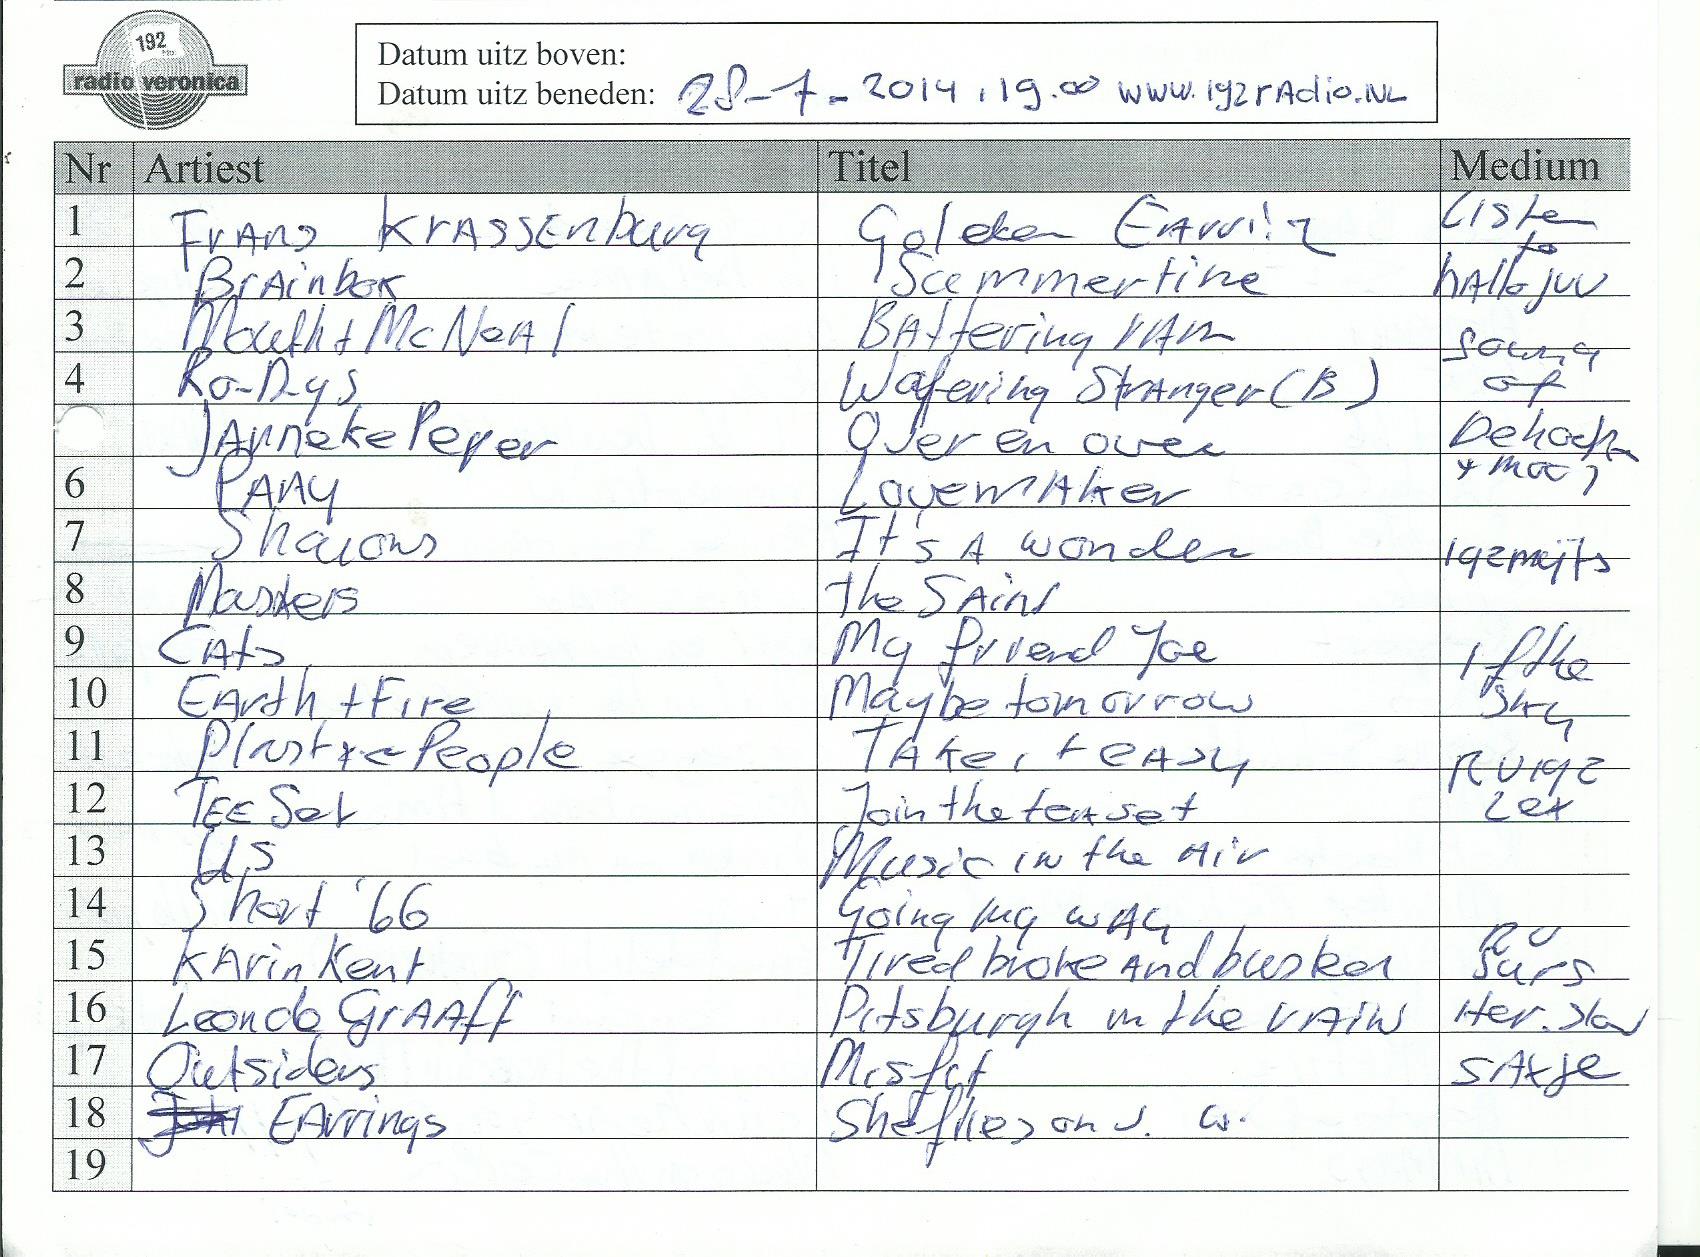 192
radio veronica
Datum uitz boven:
Datum uitz beneden: 28-7-2014, 19.00 www.192rAdio.NL
Nr Artiest Titel Medium
1 FrANS KrASSENburg Golden EArring Listen to
2 BrAinbox Summertime hAllo juu
3 Mouth + McNeAl BAttering rAm
4 Ro-Dys Wafering StrAnger (B) of
JAnneke Peper Over en over
6 PANY LovemAker
7 Shaions It's A wonder 192
8 Maskers the SAint
9 CAts My friend Joe If the
10 EArth + Fire Maybe tomorrow Sky
11 Plastic People TAke it eAsy RV 192
12 TEE Set Join the teAset Lex
13 US Music in the Air
14 Short '66 Going my wAy
15 KArin Kent Tired broke And busted
16 Leon de GrAAff Pitsburgh in the rAin
17 Outsiders Misfit
18 EArrings She flies on s. w.
19